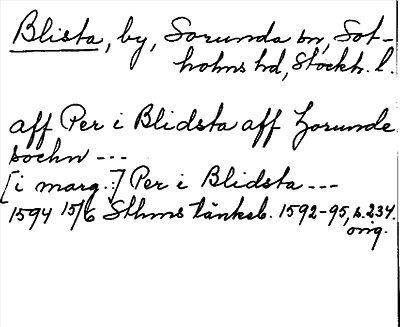 Blista, by, Sorunda sn, Sot-
holms hd, Stockh. l.
aff Per i Blidsta aff Zorunde
sochn ---
[i marg.:] Per i Blidsta ---
1594 15/6 Sthms tänkeb. 1592-95, s. 234.
orig.